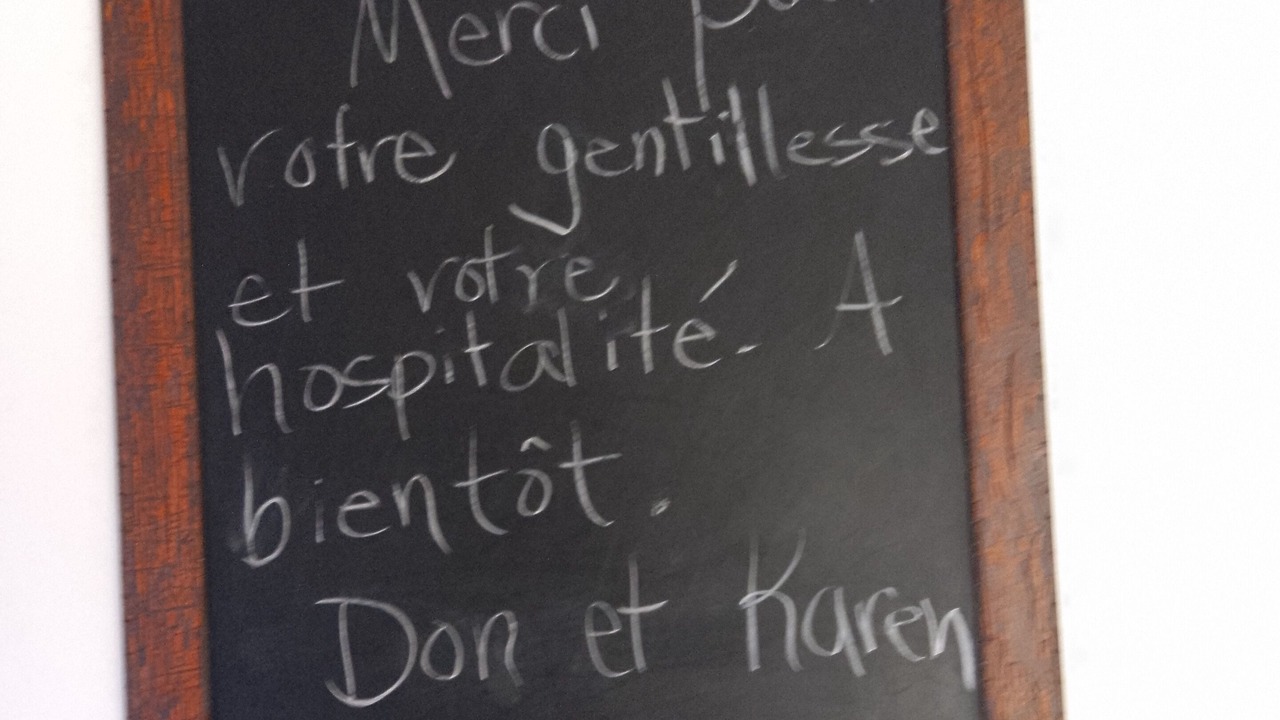 Merci pour
votre gentillesse
et votre
hospitalité. A
bientôt.
Don et Karen